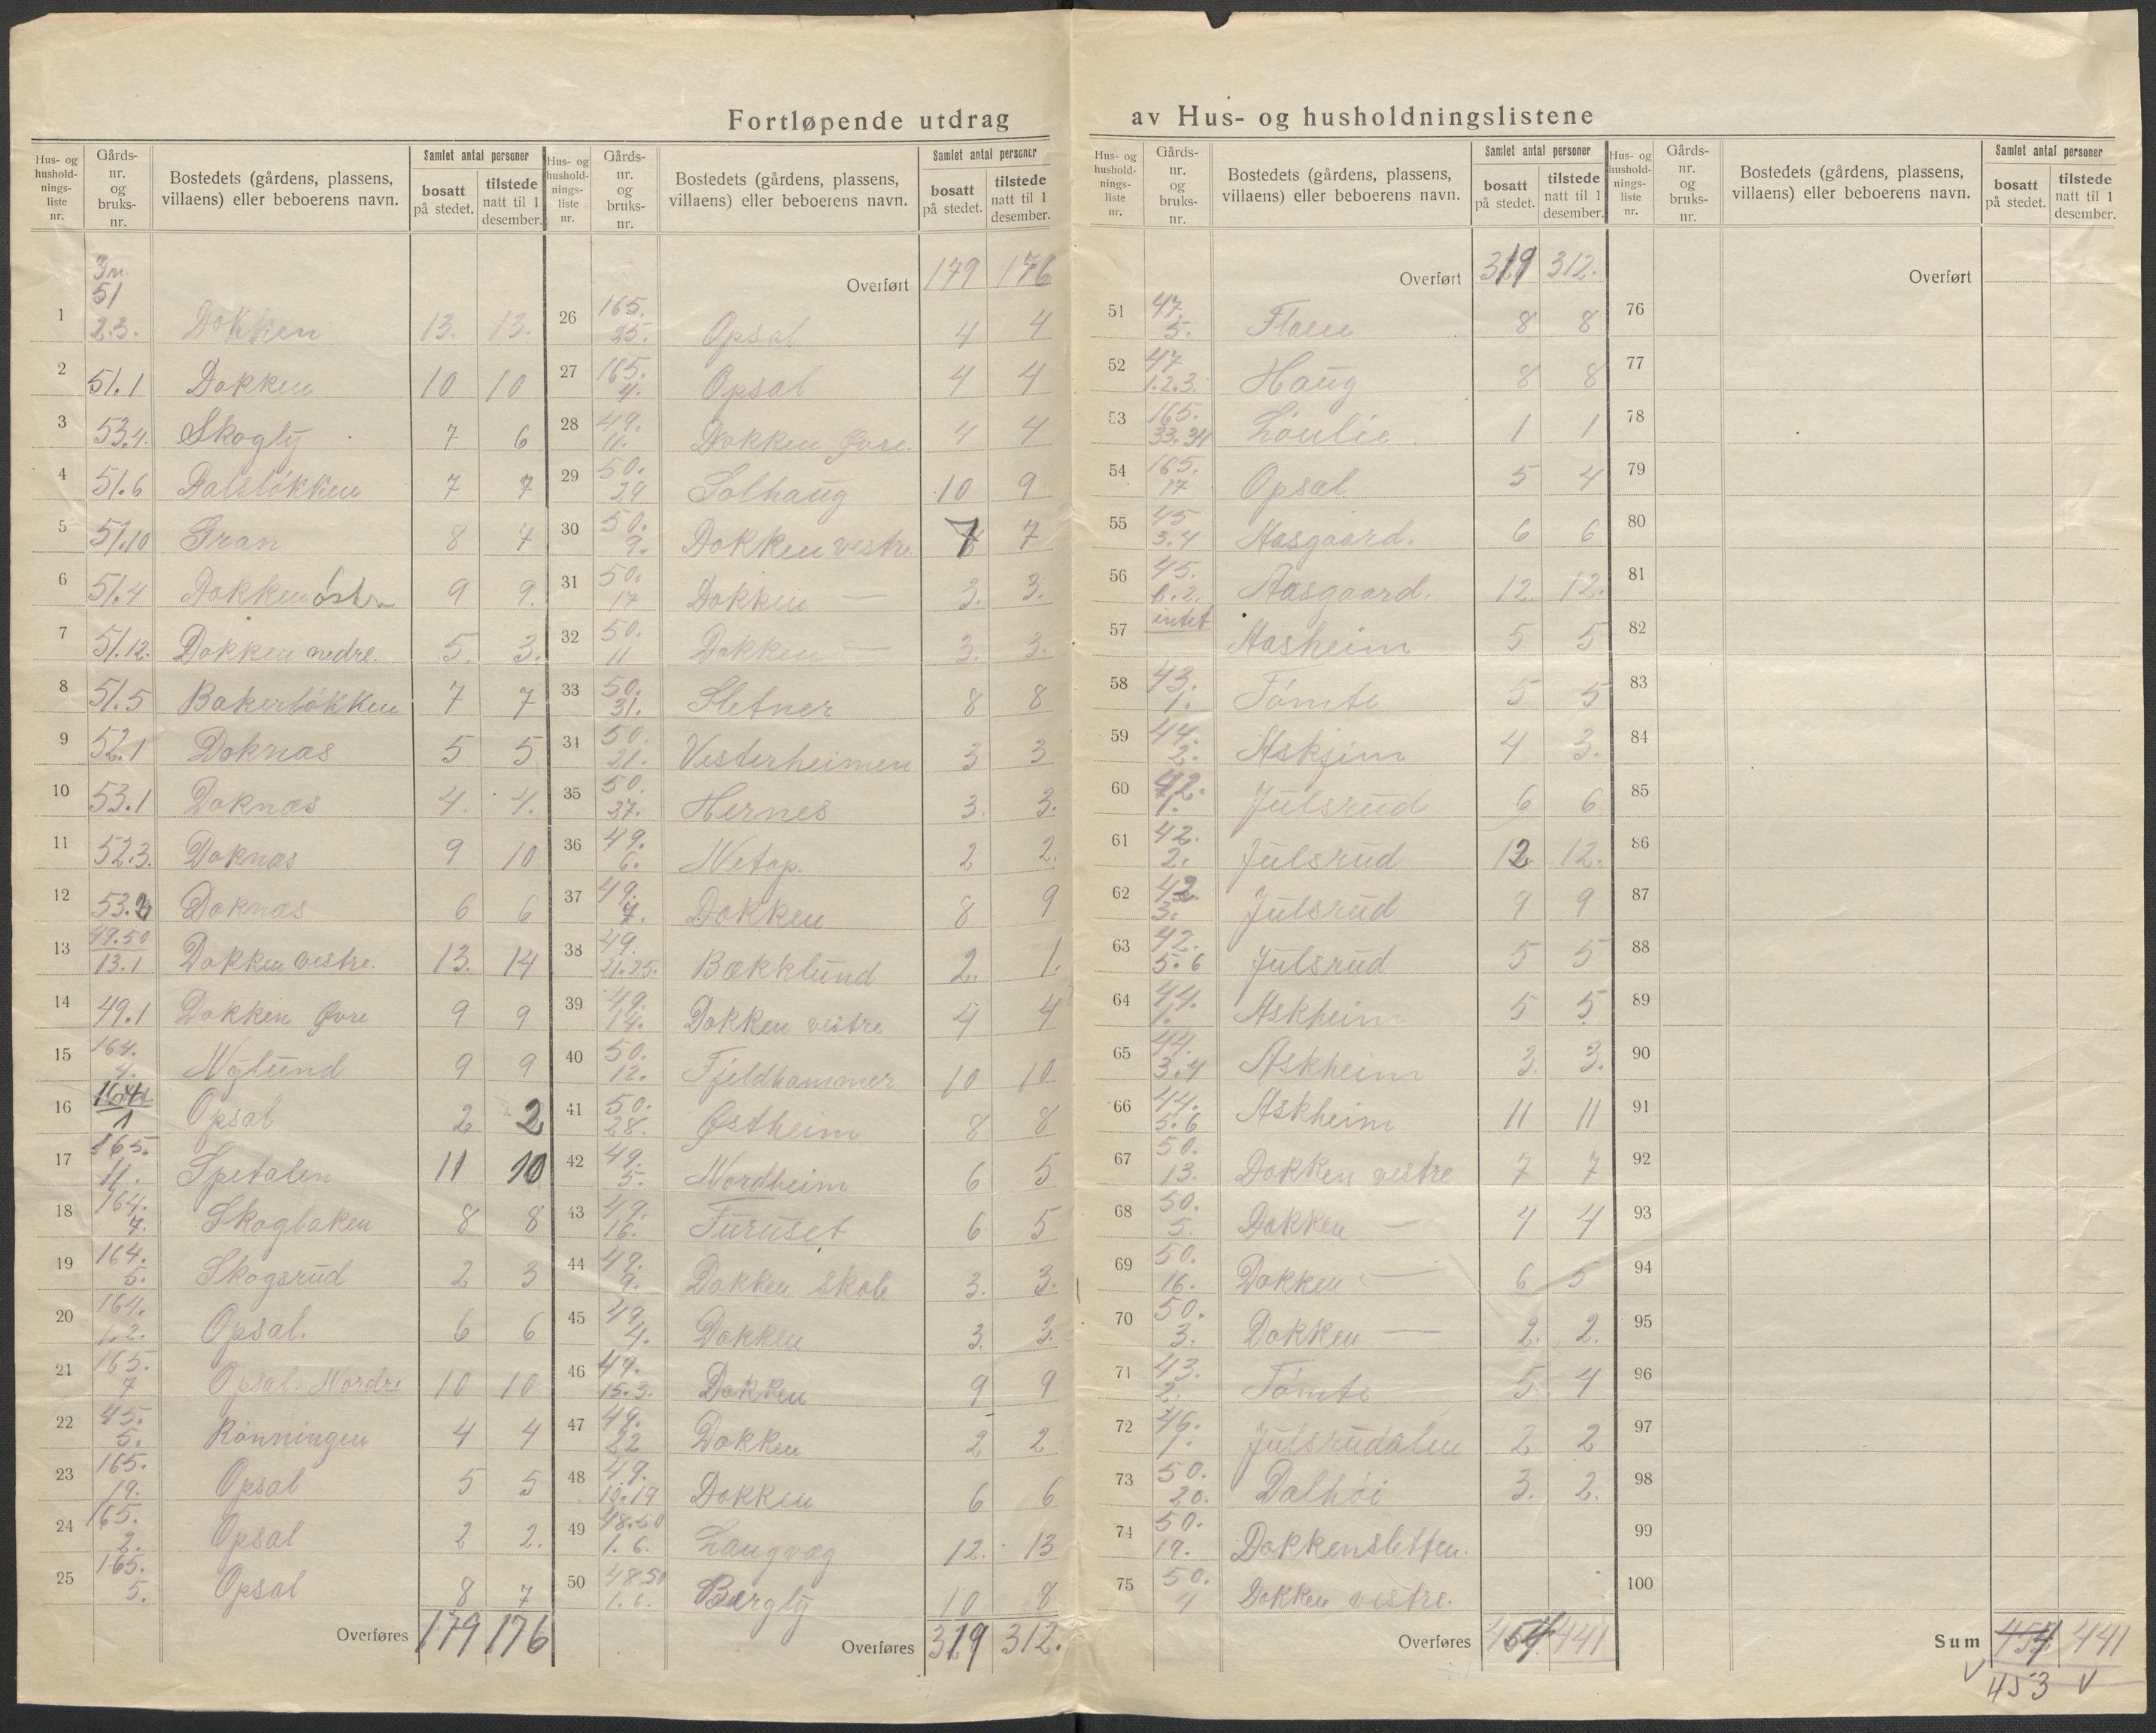 Fortløpende utdrag av Hus- og husholdningslistene
Hus- og husholdnings-liste nr. | Gårds-nr. og bruks-nr. | Bostedets (gårdens, plassens, villaens) eller beboerens navn. | Samlet antal personer bosatt på stedet. | tilstede natt til 1 desember.
Gn.
1 | 51 2.3. | Dokken | 13. | 13.
2 | 51.1 | Dokken | 10 | 10
3 | 53.4. | Skogly | 7 | 6
4 | 51.6 | Dalsløkken | 7 | 7
5 | 51.10 | Gran | 8 | 7
6 | 51.4 | Dokken østre | 9 | 9.
7 | 51.12. | Dokken nedre. | 5. | 3.
8 | 51.5 | Bakerløkken | 7 | 7
9 | 52.1 | Doknæs | 5 | 5
10 | 53.1 | Doknæs | 4. | 4.
11 | 52.3. | Doknæs | 9 | 10
12 | 53. | Doknæs | 6 | 6
13 | 49.50 13.1 | Dokken vestre. | 13. | 14
14 | 49.1 | Dokken Øvre | 9 | 9
15 | 164. 4. | Nylund | 9 | 9
16 | 164 1 | Opsal | 2 | 2
17 | 165. 11. | Spetalen | 11 | 10
18 | 164. 7. | Skogbaken | 8 | 8
19 | 164. 5. | Skogsrud | 2 | 3
20 | 164. 1.2. | Opsal. | 6 | 6
21 | 165. 7 | Opsal. Nordre | 10 | 10
22 | 45. 5. | Rønningen | 4 | 4
23 | 165. 19. | Opsal | 5 | 5
24 | 165. 2. | Opsal | 2 | 2.
25 | 165. 5. | Opsal | 8 | 7
Overføres | 179 | 176
Hus- og husholdnings-liste nr. | Gårds-nr. og bruks-nr. | Bostedets (gårdens, plassens, villaens) eller beboerens navn. | Samlet antal personer bosatt på stedet. | tilstede natt til 1 desember.
Overført | 179 | 176
26 | 165. 25. | Opsal | 4 | 4
27 | 165. 4. | Opsal | 4 | 4
28 | 49. 11. | Dokken Øvre. | 4 | 4
29 | 50. 29 | Solhaug | 10 | 9
30 | 50. 9. | Dokken vestre | 7 | 7
31 | 50. 17 | Dokken — | 3. | 3.
32 | 50. 11 | Dokken — | 3. | 3.
33 | 50. 31. | Sletner | 8 | 8
34 | 50. 21. | Vesterheimen | 3 | 3
35 | 50. 37. | Hernes | 3. | 3.
36 | 49. 6. | Netop. | 2 | 2.
37 | 49. 7. | Dokken | 8 | 9
38 | 49. 21.25. | Bækklund | 2. | 1.
39 | 49. 14. | Dokken vestre | 4 | 4
40 | 50. 12. | Fjeldhammer | 10 | 10
41 | 50. 28. | Østheim | 8 | 8
42 | 49. 5. | Nordheim | 6 | 5
43 | 49. 16. | Furuset | 6 | 5
44 | 49. 9. | Dokken skole | 3. | 3.
45 | 49. 4. | Dokken | 3. | 3.
46 | 49. 15.3. | Dokken | 9 | 9
47 | 49. 22 | Dokken | 2 | 2
48 | 49. 10.19 | Dokken | 6 | 6
49 | 48.50 1.6. | Langvag | 12. | 13
50 | 48.50 1.6. | Bergly | 10 | 8
Overføres | 319 | 312.
Hus- og husholdnings-liste nr. | Gårds-nr. og bruks-nr. | Bostedets (gårdens, plassens, villaens) eller beboerens navn. | Samlet antal personer bosatt på stedet. | tilstede natt til 1 desember.
Overført | 319 | 312.
51 | 47. 5. | Floen | 8 | 8
52 | 47 1.2.3. | Haug | 8 | 8
53 | 165. 33.34 | Lønlie | 1 | 1
54 | 165. 17 | Opsal | 5 | 4
55 | 45 3.4 | Aasgaard. | 6 | 6
56 | 45. 6.2. | Aasgaard. | 12. | 12.
57 | intet | Aasheim | 5 | 5
58 | 43. 1. | Tømte | 5 | 5
59 | 44. 2. | Askjim | 4 | 3.
60 | 42. 1. | Julsrud | 6 | 6
61 | 42. 2. | Julsrud | 12 | 12.
62 | 42 3. | Julsrud | 9 | 9
63 | 42. 5.6 | Julsrud | 5 | 5
64 | 44. 1. | Askheim | 5 | 5
65 | 44. 3.4 | Askheim | 3. | 3.
66 | 44. 5.6 | Askheim | 11 | 11
67 | 50. 13. | Dokken vestre | 7 | 7
68 | 50. 5. | Dokken — | 4 | 4
69 | 50. 16. | Dokken — | 6 | 5
70 | 50. 3. | Dokken — | 2. | 2.
71 | 43. 2. | Tømte | 5 | 4
72 | 46. 1. | Julsrudalen | 2 | 2
73 | 50. 20. | Dalhøi | 3. | 2.
74 | 50. 19. | Dokkensletten.
75 | 50. 4 | Dokken vestre.
Overføres | 454 | 441
Hus- og husholdnings-liste nr. | Gårds-nr. og bruks-nr. | Bostedets (gårdens, plassens, villaens) eller beboerens navn. | Samlet antal personer bosatt på stedet. | tilstede natt til 1 desember.
Overført
76
77
78
79
80
81
82
83
84
85
86
87
88
89
90
91
92
93
94
95
96
97
98
99
100
Sum | 454 | 441
453